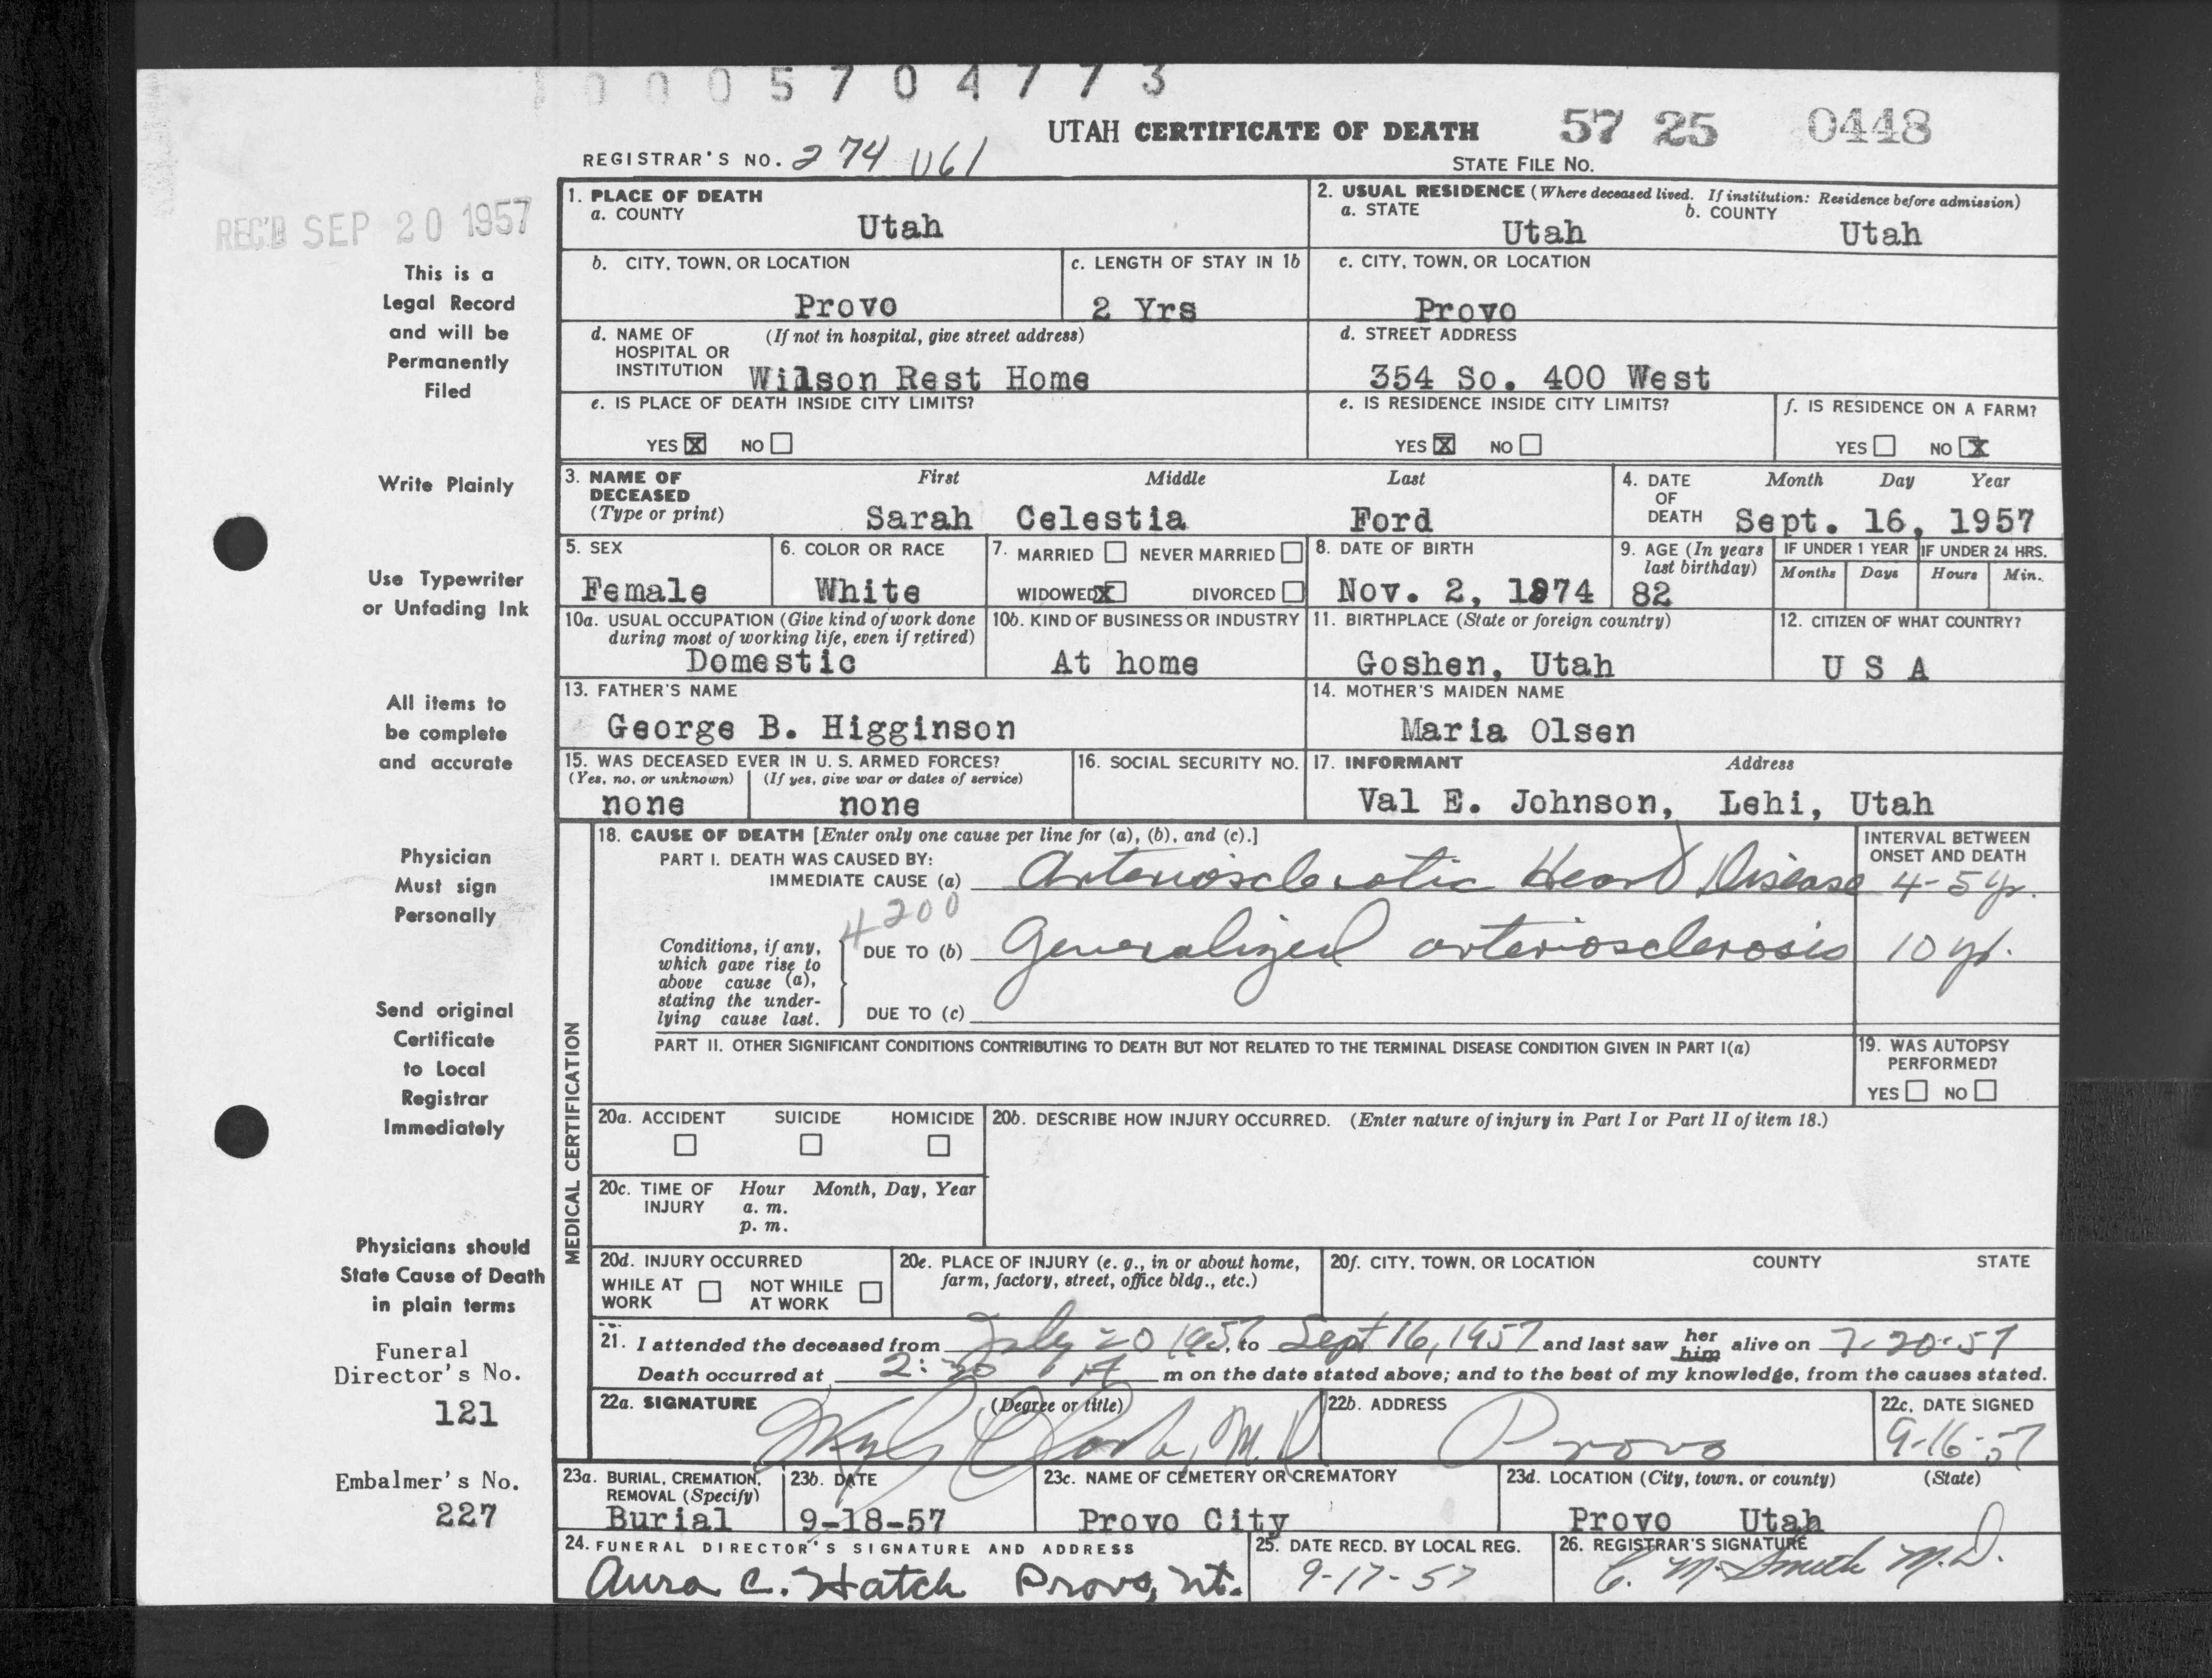 0005704773
UTAH CERTIFICATE OF DEATH 57 25 0448
REGISTRAR'S NO. 274 061 STATE FILE NO.
REC'D SEP 20 1957
This is a
Legal Record
and will be
Permanently
Filed
Write Plainly
Use Typewriter
or Unfading Ink
All items to
be complete
and accurate
Physician
Must sign
Personally
Send original
Certificate
to Local
Registrar
Immediately
Physicians should
State Cause of Death
in plain terms
Funeral
Director's No.
121
Embalmer's No.
227
1. PLACE OF DEATH
a. COUNTY
Utah
2. USUAL RESIDENCE (Where deceased lived. If institution: Residence before admission)
a. STATE b. COUNTY
Utah Utah
b. CITY, TOWN, OR LOCATION
Provo
c. LENGTH OF STAY IN 1b
2 Yrs
c. CITY, TOWN, OR LOCATION
Provo
d. NAME OF (If not in hospital, give street address)
HOSPITAL OR
INSTITUTION Wilson Rest Home
d. STREET ADDRESS
354 So. 400 West
e. IS PLACE OF DEATH INSIDE CITY LIMITS?
YES X NO
e. IS RESIDENCE INSIDE CITY LIMITS?
YES X NO
f. IS RESIDENCE ON A FARM?
YES NO X
3. NAME OF First Middle Last
DECEASED
(Type or print) Sarah Celestia Ford
4. DATE Month Day Year
OF
DEATH Sept. 16, 1957
5. SEX
Female
6. COLOR OR RACE
White
7. MARRIED NEVER MARRIED
WIDOWED X DIVORCED
8. DATE OF BIRTH
Nov. 2, 1874
9. AGE (In years
last birthday)
82
IF UNDER 1 YEAR IF UNDER 24 HRS.
Months Days Hours Min.
10a. USUAL OCCUPATION (Give kind of work done
during most of working life, even if retired)
Domestic
10b. KIND OF BUSINESS OR INDUSTRY
At home
11. BIRTHPLACE (State or foreign country)
Goshen, Utah
12. CITIZEN OF WHAT COUNTRY?
U S A
13. FATHER'S NAME
George B. Higginson
14. MOTHER'S MAIDEN NAME
Maria Olsen
15. WAS DECEASED EVER IN U. S. ARMED FORCES?
(Yes, no, or unknown) (If yes, give war or dates of service)
none none
16. SOCIAL SECURITY NO.
17. INFORMANT Address
Val E. Johnson, Lehi, Utah
MEDICAL CERTIFICATION
18. CAUSE OF DEATH [Enter only one cause per line for (a), (b), and (c).]
INTERVAL BETWEEN
ONSET AND DEATH
PART I. DEATH WAS CAUSED BY:
IMMEDIATE CAUSE (a) Arteriosclerotic Heart Disease 4-5 yr.
4200
Conditions, if any,
which gave rise to
above cause (a),
stating the under-
lying cause last.
DUE TO (b) Generalized arteriosclerosis 10 yr.
DUE TO (c)
PART II. OTHER SIGNIFICANT CONDITIONS CONTRIBUTING TO DEATH BUT NOT RELATED TO THE TERMINAL DISEASE CONDITION GIVEN IN PART I(a)
19. WAS AUTOPSY
PERFORMED?
YES NO
20a. ACCIDENT SUICIDE HOMICIDE
20b. DESCRIBE HOW INJURY OCCURRED. (Enter nature of injury in Part I or Part II of item 18.)
20c. TIME OF Hour Month, Day, Year
INJURY a. m.
p. m.
20d. INJURY OCCURRED
WHILE AT NOT WHILE
WORK AT WORK
20e. PLACE OF INJURY (e. g., in or about home,
farm, factory, street, office bldg., etc.)
20f. CITY, TOWN, OR LOCATION COUNTY STATE
21. I attended the deceased from July 20 1956, to Sept 16, 1957 and last saw her him alive on 7-20-57
Death occurred at 2:30 m on the date stated above; and to the best of my knowledge, from the causes stated.
22a. SIGNATURE (Degree or title)
M.D.
22b. ADDRESS
Provo
22c. DATE SIGNED
9-16-57
23a. BURIAL, CREMATION,
REMOVAL (Specify)
Burial
23b. DATE
9-18-57
23c. NAME OF CEMETERY OR CREMATORY
Provo City
23d. LOCATION (City, town, or county) (State)
Provo Utah
24. FUNERAL DIRECTOR'S SIGNATURE AND ADDRESS
Aura C. Hatch Provo, Ut.
25. DATE RECD. BY LOCAL REG.
9-17-57
26. REGISTRAR'S SIGNATURE
C. M. Smith M.D.